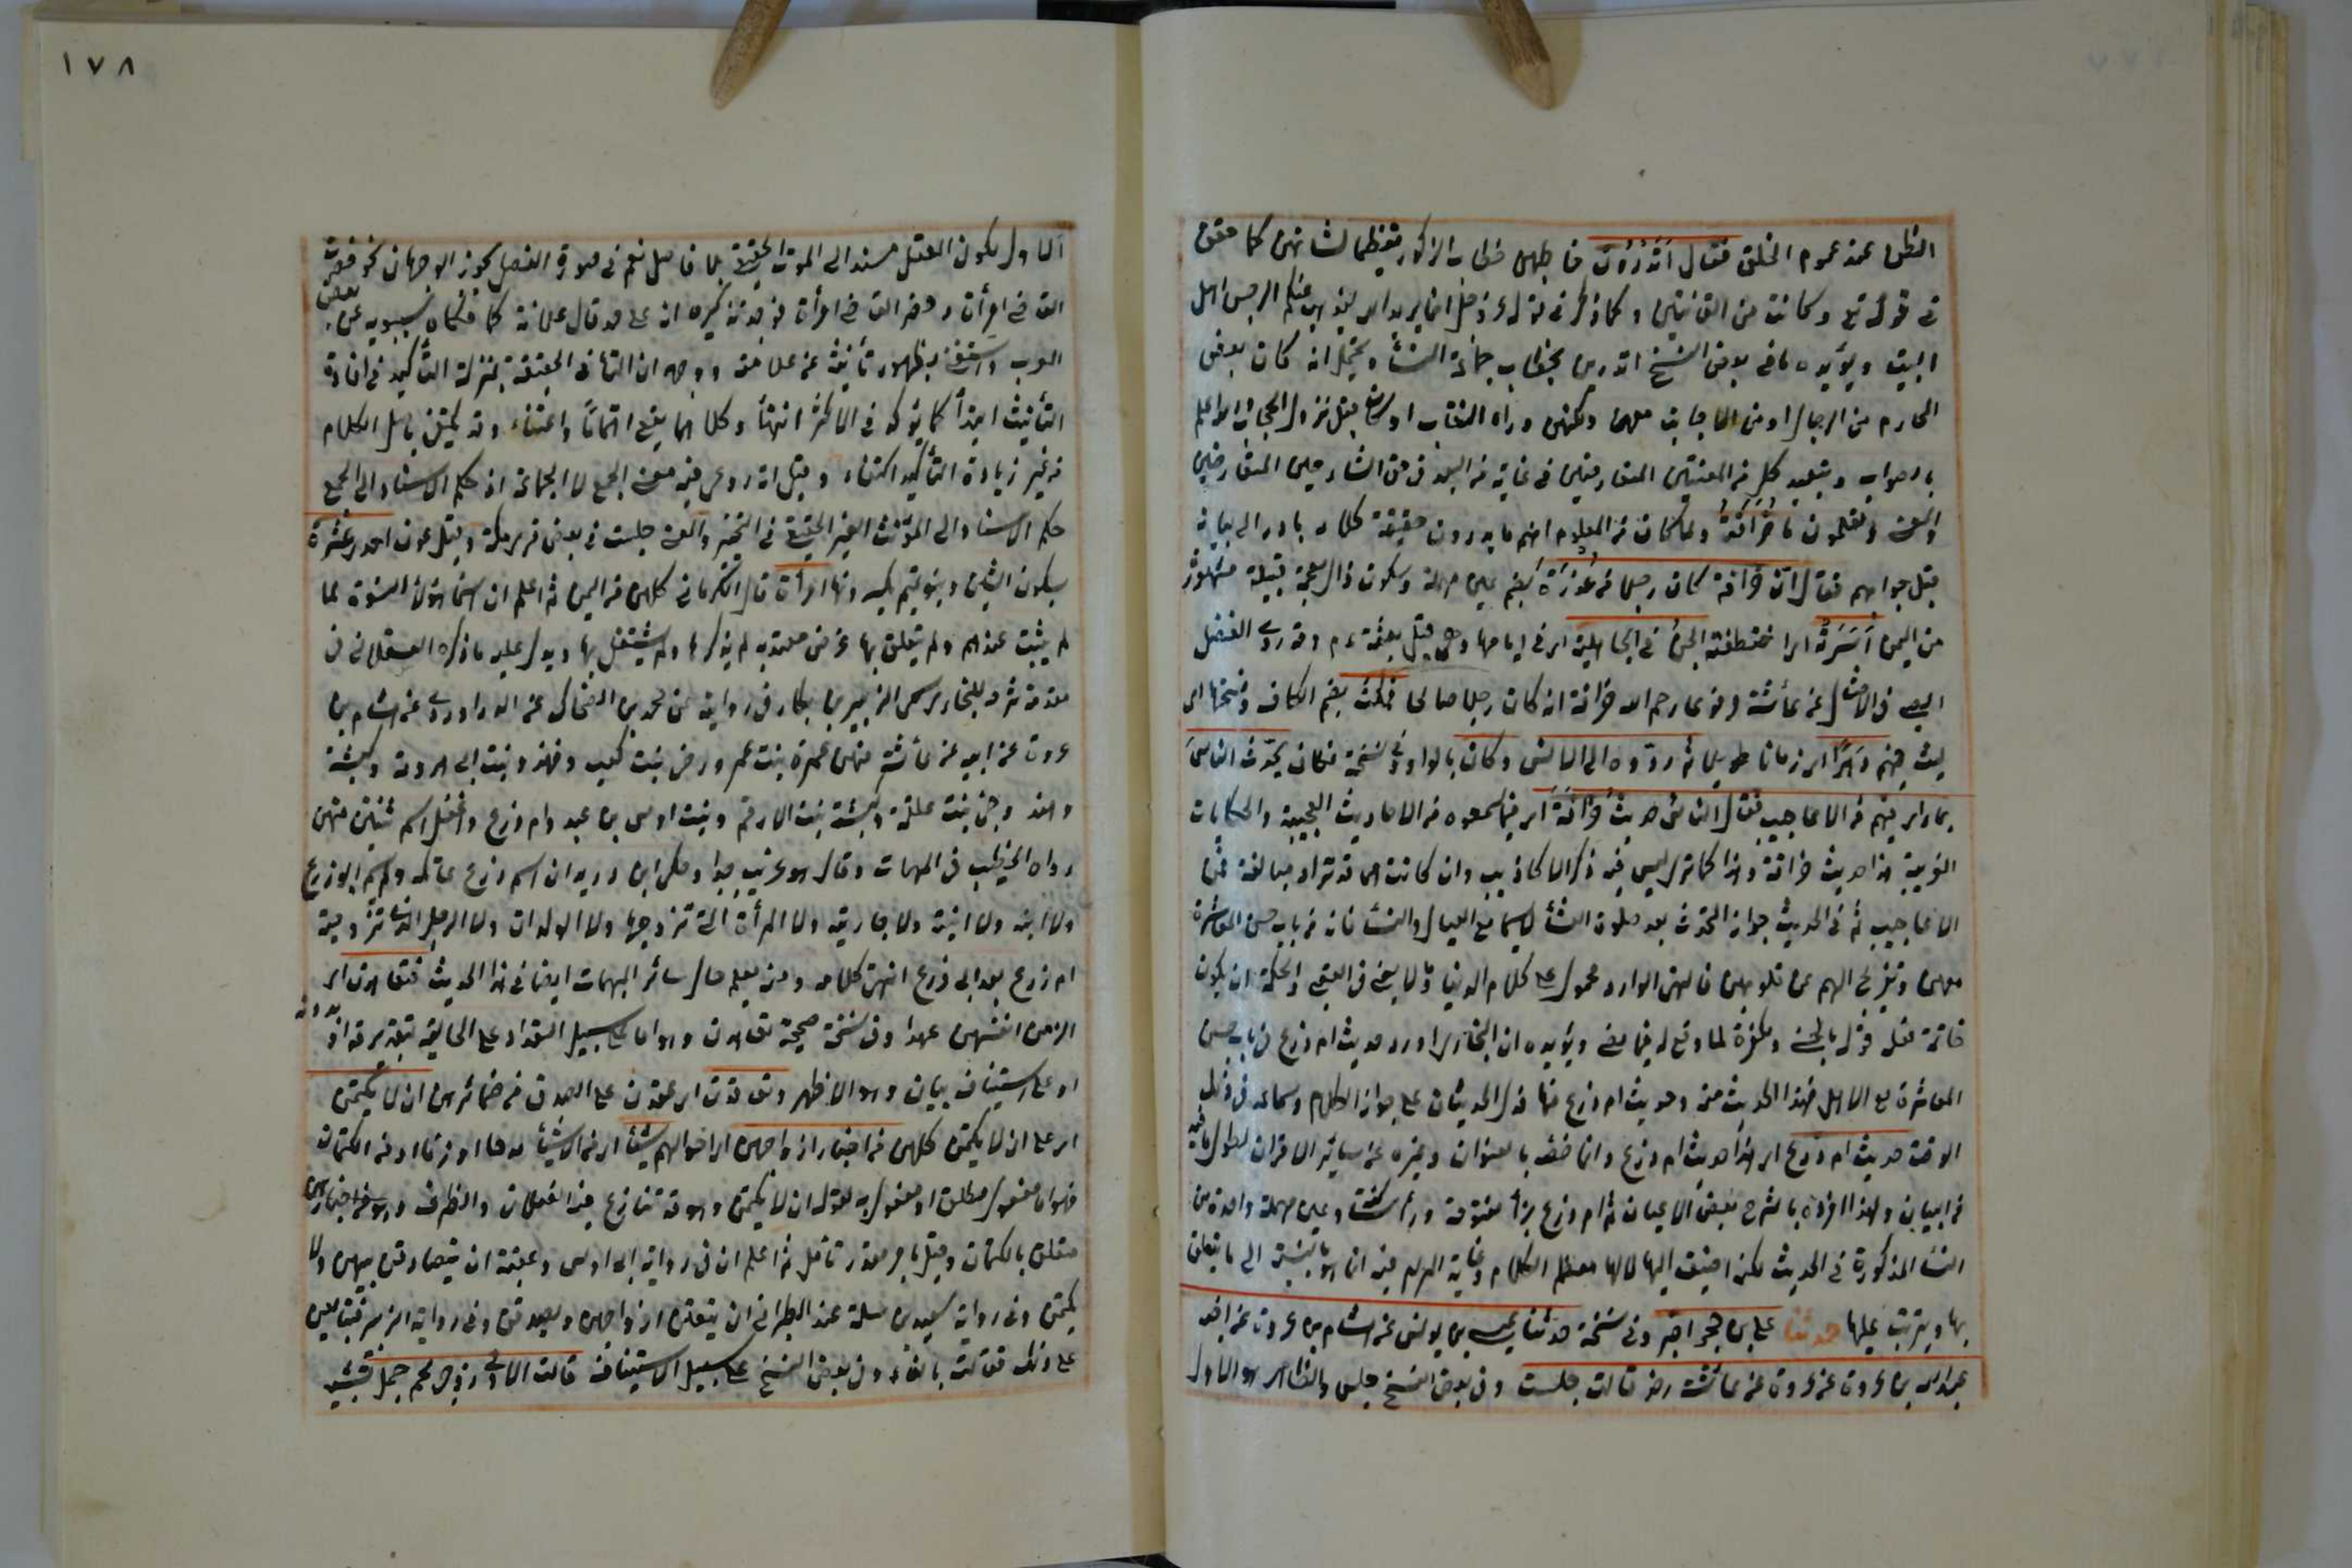 الظن عند عموم الخلق فقال أتدرون خاطبهن خطاب الذكور تعظيما لشانهن كما حقق
في قوله تع وكانت من القانتين وكما ذكر في قوله عز وجل انما يريد الله ليذهب عنكم الرجس اهل
البيت ويؤيده ما في بعض النسخ اتدرين بخطاب جماعة النسأ ويحتمل انه كان بعض
المحارم من الرجال او من الاجانب معهن ولكنهن وراء النقاب او كان قبل نزول الحجاب والله اعلم
بالصواب وبتعيد كل من المعنيين المتعارضين في غاية من البعد في حق الشارحين المتعارضين
والمعنى وتعلمون ما خُرَافَةُ ولما كان من المعلوم انهم ما يدرون حقيقة كلامه بادر الى بيانه
قبل جوابهم فقال ان خرافة كان رجلا من عُذرَةَ بضم عين مهملة وسكون ذال معجمة قبيلة مشهورة
من اليمن أَسَرَتْهُ اى اختطفته الجنُّ في الجاهلية اى في ايامها وهى قبل بعثته عم وقد روى المفضل
الضبى في الامثال عن عائشة مرفوعا رحم الله خرافة انه كان رجلا صالحا فمكث بضم الكاف وفتحها اى
لبث فيهم دَهرًا اى زمانا طويلا ثم ردّوه الى الانس وكان بالواو وفي نسخة فكان يحدّث الناسَ
بما راى فيهم من الاعاجيب فقال الناس حديث خُرَافَةَ اى فيما سمعوه من الاحاديث العجيبة والحكايات
الغريبة هذا حديث خرافة وهذا كما ترى ليس فيه ذكر الاكاذيب وان كانت هى قد تراد مبالغة في
الاعاجيب ثم في الحديث جواز التحدث بعد صلوة العشأ لاسيما مع العيال والنسأ فانه من باب حسن المعاشرة
معهن وتفريح الهم عن قلوبهن فالنهى الوارد محمول على كلام الدنيا وما لا يعنى في العقبى والحكمة ان يكون
خاتمة فعله وقوله بالحسنى ومكفرة لما وقع له فيما مضى ويؤيده ان البخارى اورد حديث ام زرع في باب حسن
المعاشرة مع الاهل فهذا الحديث منه وحديث ام زرع منها فدل الحديثان على جواز الكلام وسماعه في ذلك
الوقت حديث ام زرع اى هذا حديث ام زرع وانما خصه بالعنوان وميزه عن سائر الاقران لطول ما فيه
من البيان ولهذا افرده بالشرح بعض الاعيان ثم ام زرع بزأ مفتوحة ورأ ساكنة وعين مهملة واحدة من
النسأ المذكورة في الحديث لكن اضيفت اليها لانها معظم الكلام وغاية المرام فيه انما هو بالنسبة الى ما يتعلق
بها ويترتب عليها حدثنا على بن حجر اخبر وفي نسخة حدثنا عيسى بن يونس عن هشام بن عروة عن اخيه
عبد الله بن عروة عن عروة عن عائشة رض قالت جلست وفي بعض النسخ جلس والظاهر هو الاول
الاول يكون الفعل مسند الى المونث الحقيقى بلا فاصل نعم في صورة الفصل يجوز الوجهان نحو حضرت
القاضى امرأة وحضر القاضى امرأة فوجه تذكيره انه على حد قال فلانة كما حكاه سيبويه عن بعض
العرب واستغنى بظهور تأنيثه عن علامته ووجه ان التأ في الحقيقة بمنزلة التأكيد في افادة
التأنيث ابتدأ كما يؤكد في الاكثر انتهأ وكلاهما يقع اهتمامًا واعتناء وقد يكتفى باصل الكلام
من غير زيادة التأكيد اكتفاء وقيل انه روعى فيه معنى الجمع لا الجماعة اذ حكم الاسناد الى الجمع
حكم الاسناد الى المؤنث الغير الحقيقى في التخير والمعنى جلست في بعض قرى مكة وقيل عدن احدى عشرة
بسكون الشين وبنو تميم بكسرونها امرأة قال الكرمانى كلهن من اليمن ثم اعلم ان اسما هؤلاء النسوة لما
لم يثبت عندهم ولم يتعلق بها غرض معتد به لم يذكرها ولم يشتغل بها ويدل عليه ما ذكره العسقلانى في
مقدمة شرحه للبخارى عن الزبير بن بكار في رواية عن محمد بن الضحاك عن الدراوردى عن هشام بن
عروة عن ابيه عن عائشة منهن عمرة بنت عمرو وحبى بنت كعب ومهدد بنت ابى هرومة وكبشة
وهند وحبى بنت علقمة وكبشة بنت الارقم وبنت اوس بن عبد وام زرع واغفل اسم ثنتين منهن
رواه الخطيب في المبهمات وقال هو غريب جدا وحكى ابن دريد ان اسم ام زرع عاتكه ولم يسم ابو زرع
ولا ابنه ولا ابنته ولا جاريته ولا المرأة التى تزوجها ولا الولدان ولا الرجل الذى تزوجته
ام زرع بعد ابى زرع انتهى كلامه ومنه يعلم حال سائر المبهمات ايضا في هذا الحديث فتعاهدن اى
الزمن انفسهن عهدا وفي نسخة صحيحة تعاهدن وهو اما على سبيل التعداد على الحالية بتقدير قد او بدونه
او على استيناف بيان وهو الاظهر وتعاقدن اى عقدن على الصدق من ضمائرهن ان لا يكتمن
اى على ان لا يكتمن كلهن من اخبار ازواجهن اى احوالهم شيئا اى من الاشيأ مدحا او ذما او من الكتمان
فهو اما مفعول مطلق او مفعول به لقوله ان لا يكتمن وهو قد تنازع فيه الفعلان والظرف وهو من اخبارهن
متعلق بالكتمان وقيل باخر مقدر تامل ثم اعلم ان في رواية ابى اويس وعقبة ان يتصادقن بينهن ولا
يكتمن وفي رواية سعيد بن سلمة عند الطبرانى ان ينعتن ازواجهن ويصدقن وفي رواية الزبير فتبايعن
على ذلك فقالت بالفاء وفي بعض النسخ على سبيل الاستيناف قالت الاولى زوجى لحم جمل